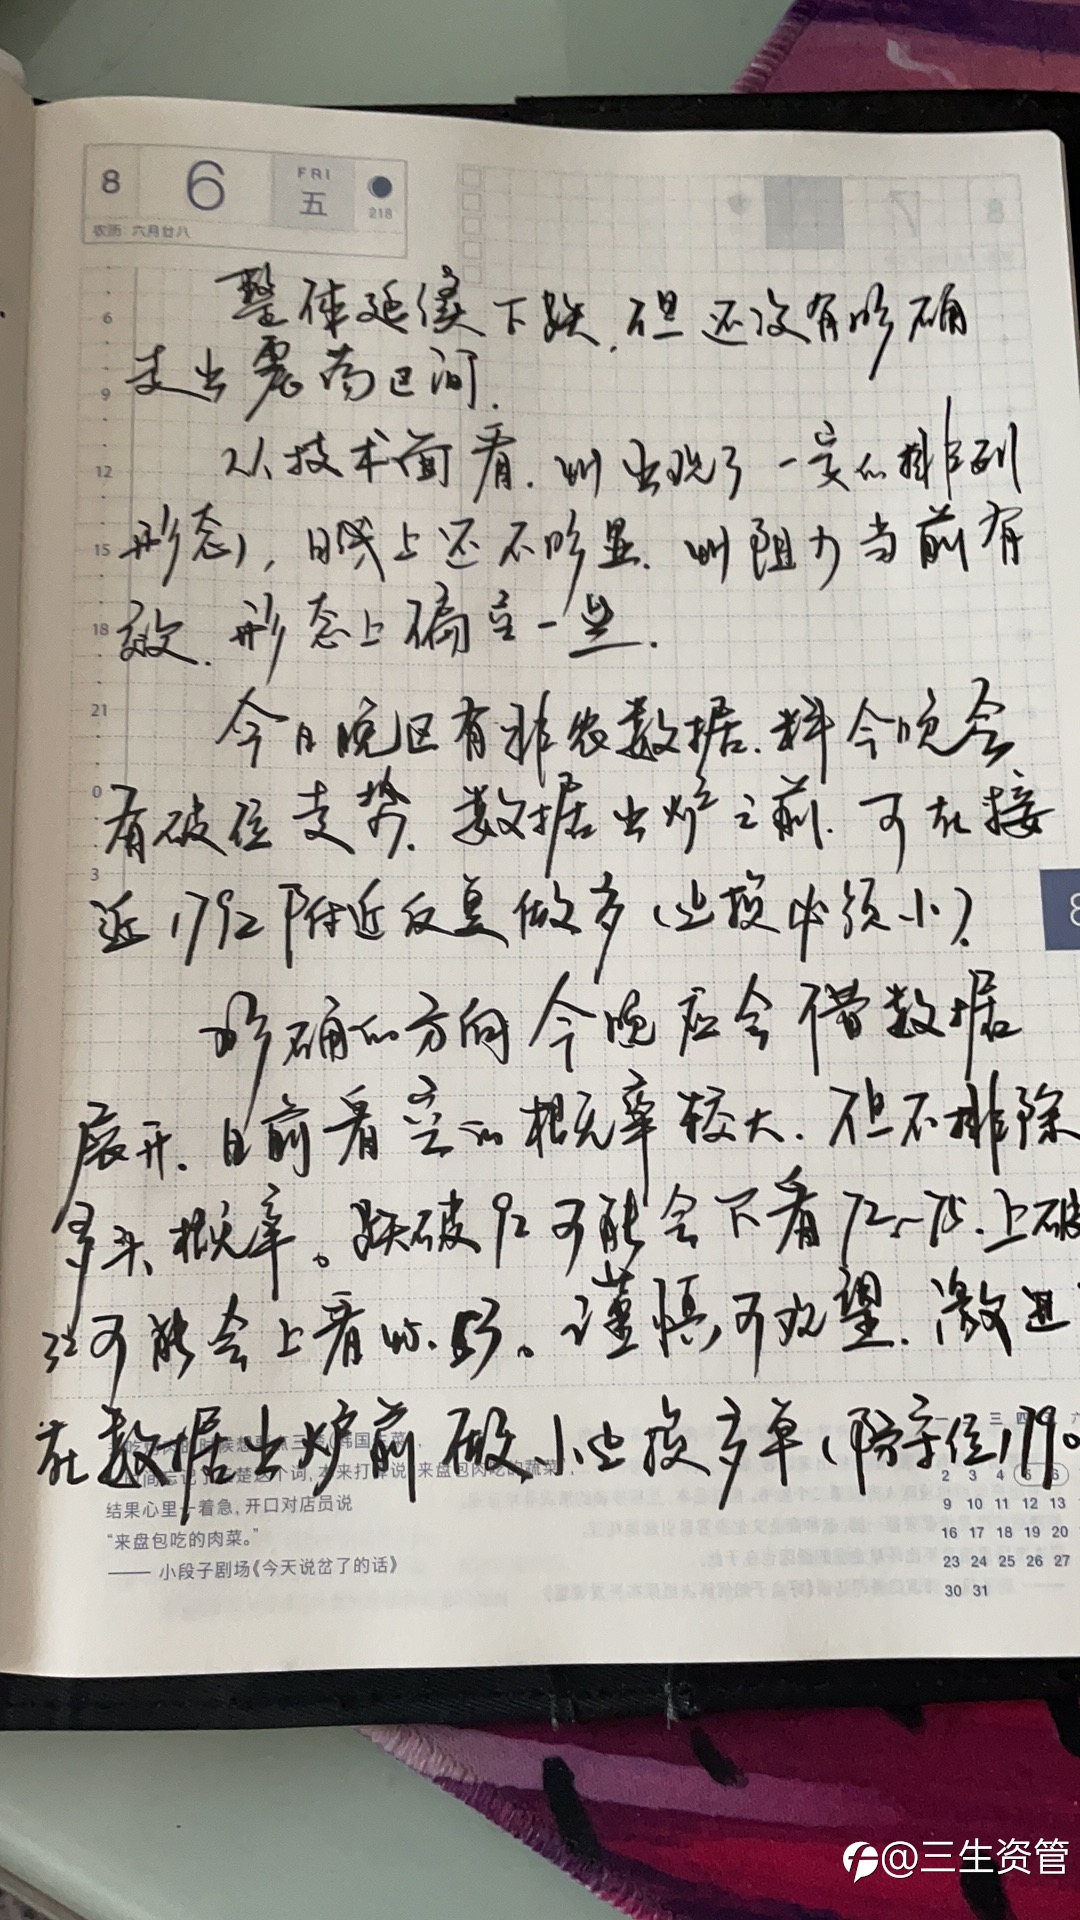 8 6 FRI 五 218
农历 六月廿八
整体延续下跌,但还没有明确
走出震荡区间.
从技术面看.4H出现了一定的排列
形态,日线上还不明显.4H阻力当前有
效.形态上偏空一些.
今日晚区有非农数据.料今晚会
有破位走势.数据出炉之前.可在接
近1792附近反复做多(止损必须小).
明确的方向今晚应会借数据
展开.目前看空的概率较大.但不排除
多头概率。跌破92可能会下看72~75.上破
32可能会上看45.53。谨慎可观望.激进
在数据出炉前做小止损多单(防守位1790
6
9
12
15
18
21
0
3
8
结果心里一着急,开口对店员说
“来盘包吃的肉菜。”
—— 小段子剧场《今天说岔了的话》
三 四 六
2 3 4 5 6
9 10 11 12 13
16 17 18 19 20
23 24 25 26 27
30 31
@三生资管